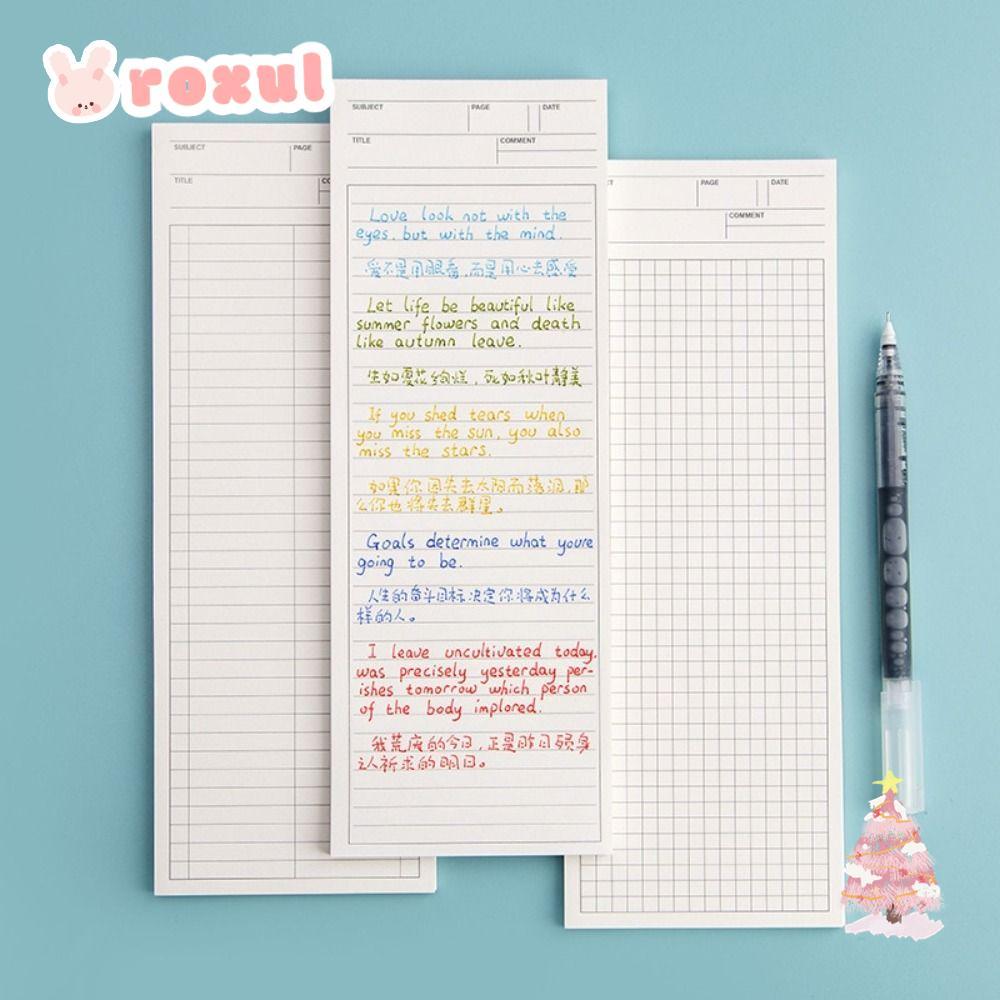 roxul
SUBJECT PAGE
TITLE
SUBJECT PAGE DATE
TITLE COMMENT
Love look not with the
eyes, but with the mind.
爱不是用眼看，而是用心去感受
Let life be beautiful like
summer flowers and death
like autumn leave.
生如夏花绚烂，死如秋叶静美
If you shed tears when
you miss the sun, you also
miss the stars.
如果你因失去太阳而落泪，那
么你也将失去群星。
Goals determine what you're
going to be.
人生的奋斗目标决定你将成为什么
样的人。
I leave uncultivated today,
was precisely yesterday per-
ishes tomorrow which person
of the body implored.
我荒废的今日，正是昨日殒身
之人祈求的明日。
PAGE DATE
COMMENT